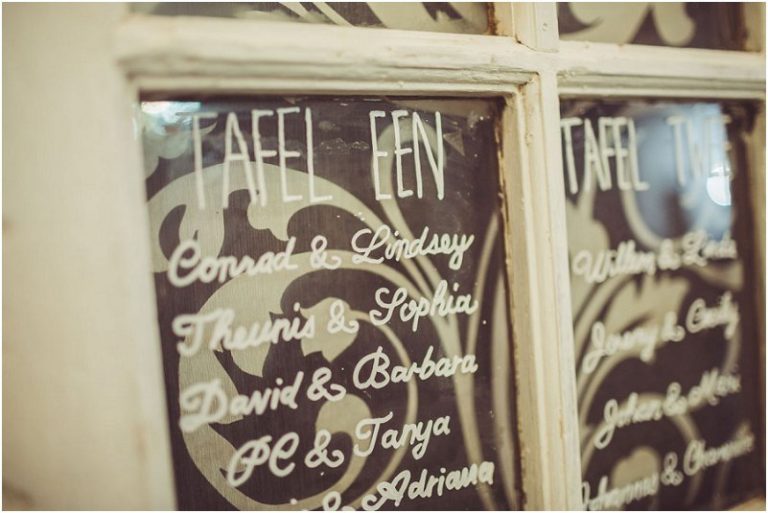 TAFEL EEN
Conrad & Lindsey
Theunis & Sophia
David & Barbara
PC & Tanya
& Adriana
TAFEL TWEE
Willem & Linda
Jeremy & Cecily
Johan &
Johannes &